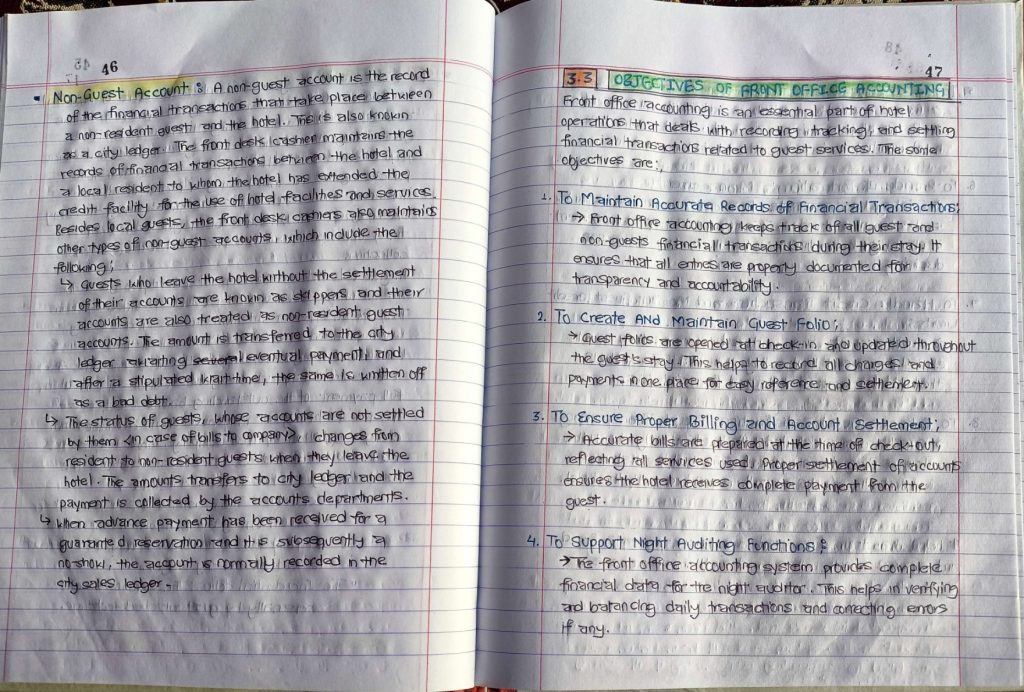 46
• Non-Guest Account : A non-guest account is the record
of the financial transactions that take place between
a non-resident guest and the hotel. This is also known
as a city ledger. The front desk cashier maintains the
records of financial transactions between the hotel and
a local resident to whom the hotel has extended the
credit facility for the use of hotel facilities and services.
Besides local guests, the front desk cashiers also maintains
other types of non-guest accounts, which include the
following;
↳ Guests who leave the hotel without the settlement
of their accounts are known as skippers and their
accounts are also treated as non-resident guest
accounts. The amount is transferred to the city
ledger awaiting eventual payment, and
after a stipulated time, the same is written off
as a bad debt.
↳ The status of guests, whose accounts are not settled
by them <in case of bills to company>, changes from
resident to non-resident guests when they leave the
hotel. The amounts transfers to city ledger and the
payment is collected by the accounts departments.
↳ When advance payment has been received for a
guaranteed reservation and it is subsequently a
no-show, the account is normally recorded in the
city sales ledger.
47
3.3 OBJECTIVES OF FRONT OFFICE ACCOUNTING
Front office accounting is an essential part of hotel
operations that deals with recording, tracking, and settling
financial transactions related to guest services. The some
objectives are:
1. To Maintain Accurate Records of Financial Transactions;
→ Front office accounting keeps track of all guest and
non-guests financial transactions during their stay. It
ensures that all entries are properly documented for
transparency and accountability.
2. To Create And Maintain Guest Folio;
→ Guest folios are opened at check-in and updated throughout
the guest's stay. This helps to record all charges and
payments in one place for easy reference and settlement.
3. To Ensure Proper Billing and Account Settlement;
→ Accurate bills are prepared at the time of check-out,
reflecting all services used. Proper settlement of accounts
ensures the hotel receives complete payment from the
guest.
4. To Support Night Auditing Functions :
→ The front office accounting system provides complete
financial data for the night auditor. This helps in verifying
and balancing daily transactions and correcting errors
if any.